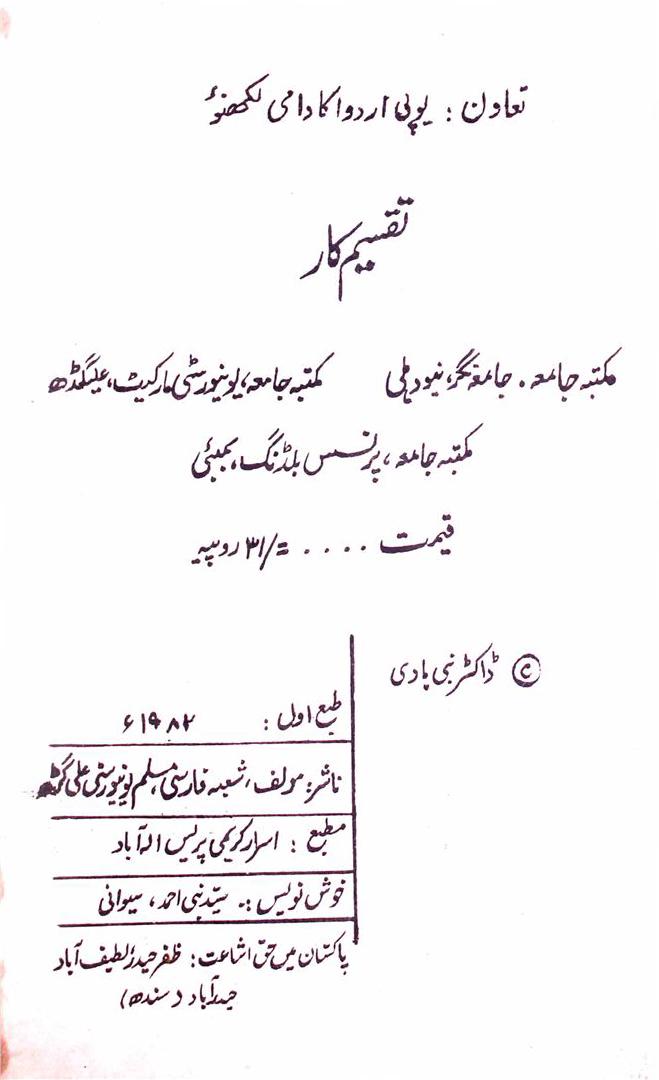 تعاون : یوپی اردو اکادامی لکھنوٴ
تقسیم کار
مکتبہ جامعہ . جامعہ نگر، نیو دہلی
مکتبہ جامعہ، یونیورسٹی مارکیٹ، علیگڈھ
مکتبہ جامعہ، پرنسس بلڈنگ، بمبئی
قیمت . . . . =/۳۱ روپیہ
© ڈاکٹر نبی ہادی
طبع اول : ۱۹۸۲ء
ناشر: مولف، شعبہ فارسی، مسلم یونیورسٹی علی گڑھ
مطبع : اسرار کریمی پریس الہ آباد
خوش نویس :۔ سیّد نبی احمد، سیوانی
پاکستان میں حق اشاعت : ظفر حیدر، لطیف آباد
حیدرآباد (سندھ)